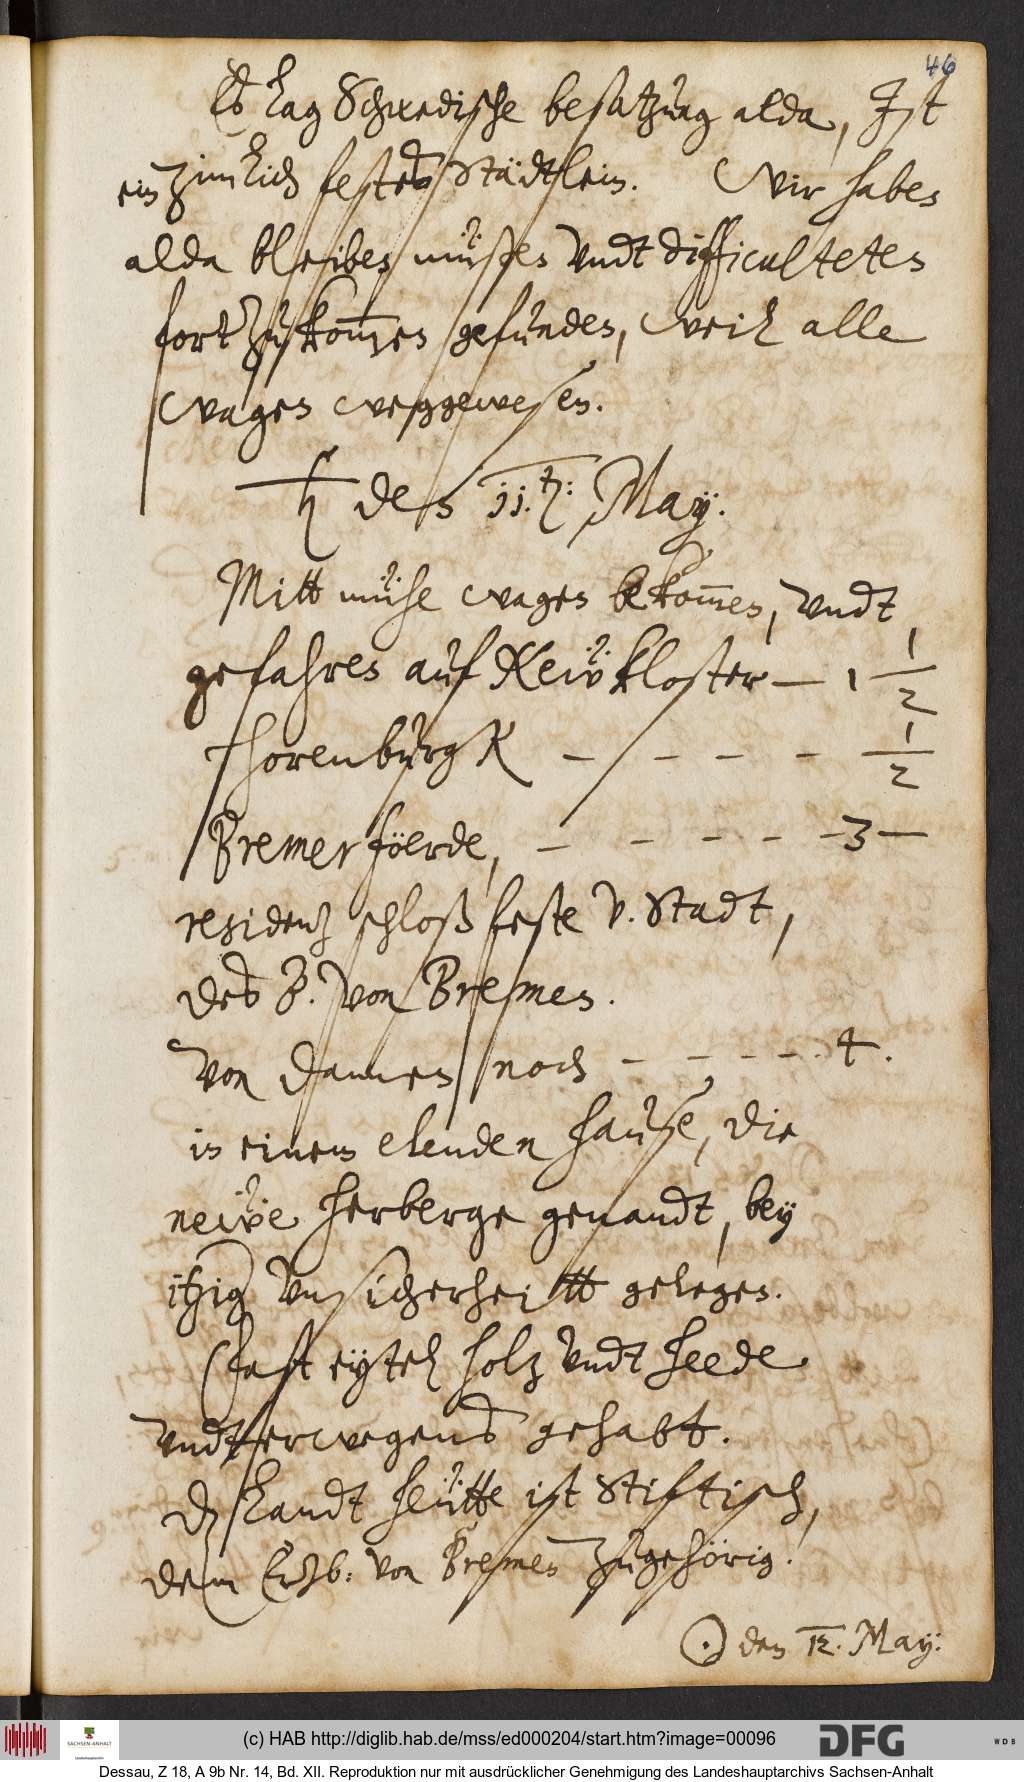 46
Es lag Schwedische besatzung alda, Jst
ein zimlich festes Städtlein. Wir haben
alda bleiben müßen vndt difficulteten
fortzukom̅en gefunden, weil alle
wagen weggewesen.
♄ den 11.ten: May.
Mitt mühe wagen bekom̅en, vndt
gefahren auf Newkloster — 1 1/2
Horenburgk — — — — 1/2
Bremerföerde, — — — — — 3 —
residentz schloß feste v. Stadt,
des B. von Bremen.
Von dannen noch — — — — . 4.
in einem elenden hause, die
newe herberge genandt, bey
itzig vnsicherheitt gelegen.
Fast eytel holz vndt Heede
vndterwegens gehabt.
D. Landt heütte ist Stiftisch,
dem Ertzb: von Bremen zugehörig.
☉ den 12. May:
(c) HAB http://diglib.hab.de/mss/ed000204/start.htm?image=00096
SACHSEN-ANHALT
Landeshauptarchiv
DFG
WDB
Dessau, Z 18, A 9b Nr. 14, Bd. XII. Reproduktion nur mit ausdrücklicher Genehmigung des Landeshauptarchivs Sachsen-Anhalt